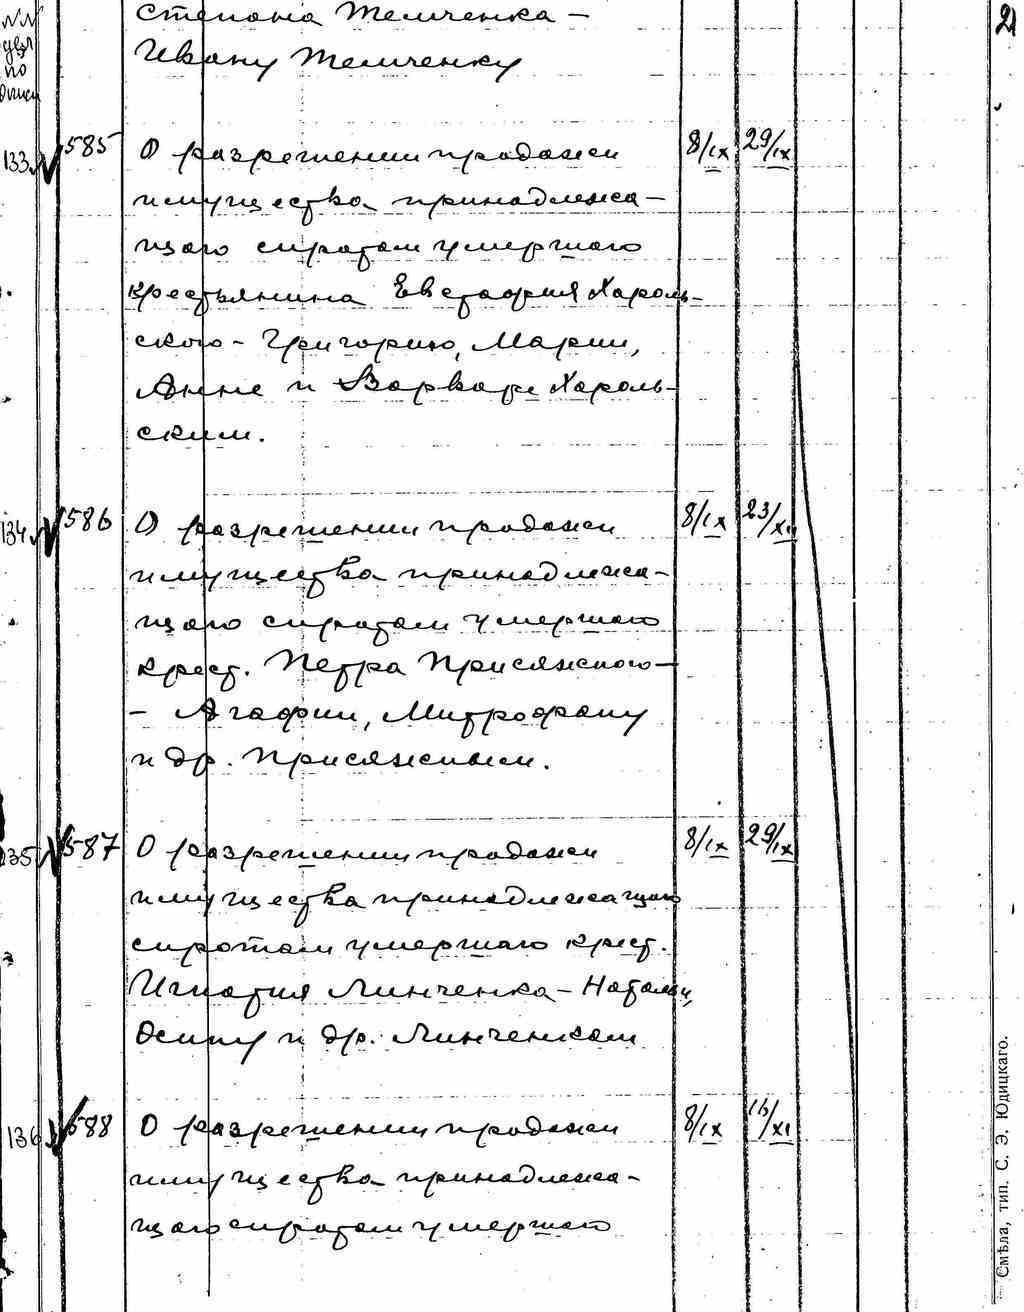 №№
дел
по
описи
2
степана Темченка –
Ивану Темченку
133. 585 О разрешении продажи 8/IX 29/IX
имущества принадлежа-
щаго сиротам умершаго
крестьянина Евстафия Хароль-
ского – Григорию, Марии,
Анне и Варваре Хароль-
ским.
134. 586 О разрешении продажи 8/IX 23/XII
имущества принадлежа-
щаго сиротам умершаго
крест. Петра Присяжного –
– Агафии, Митрофану
и др. Присяжным.
135 587 О разрешении продажи 8/IX 29/IX
имущества принадлежащаго
сиротам умершаго крест.
Игнатия Линченка – Наталии,
Осипу и др. Линченкам
136 588 О разрешении продажи 8/IX 16/XI
имущества принадлежа-
щаго сиротам умершаго
Смѣла, тип. С. Э. Юдицкаго.